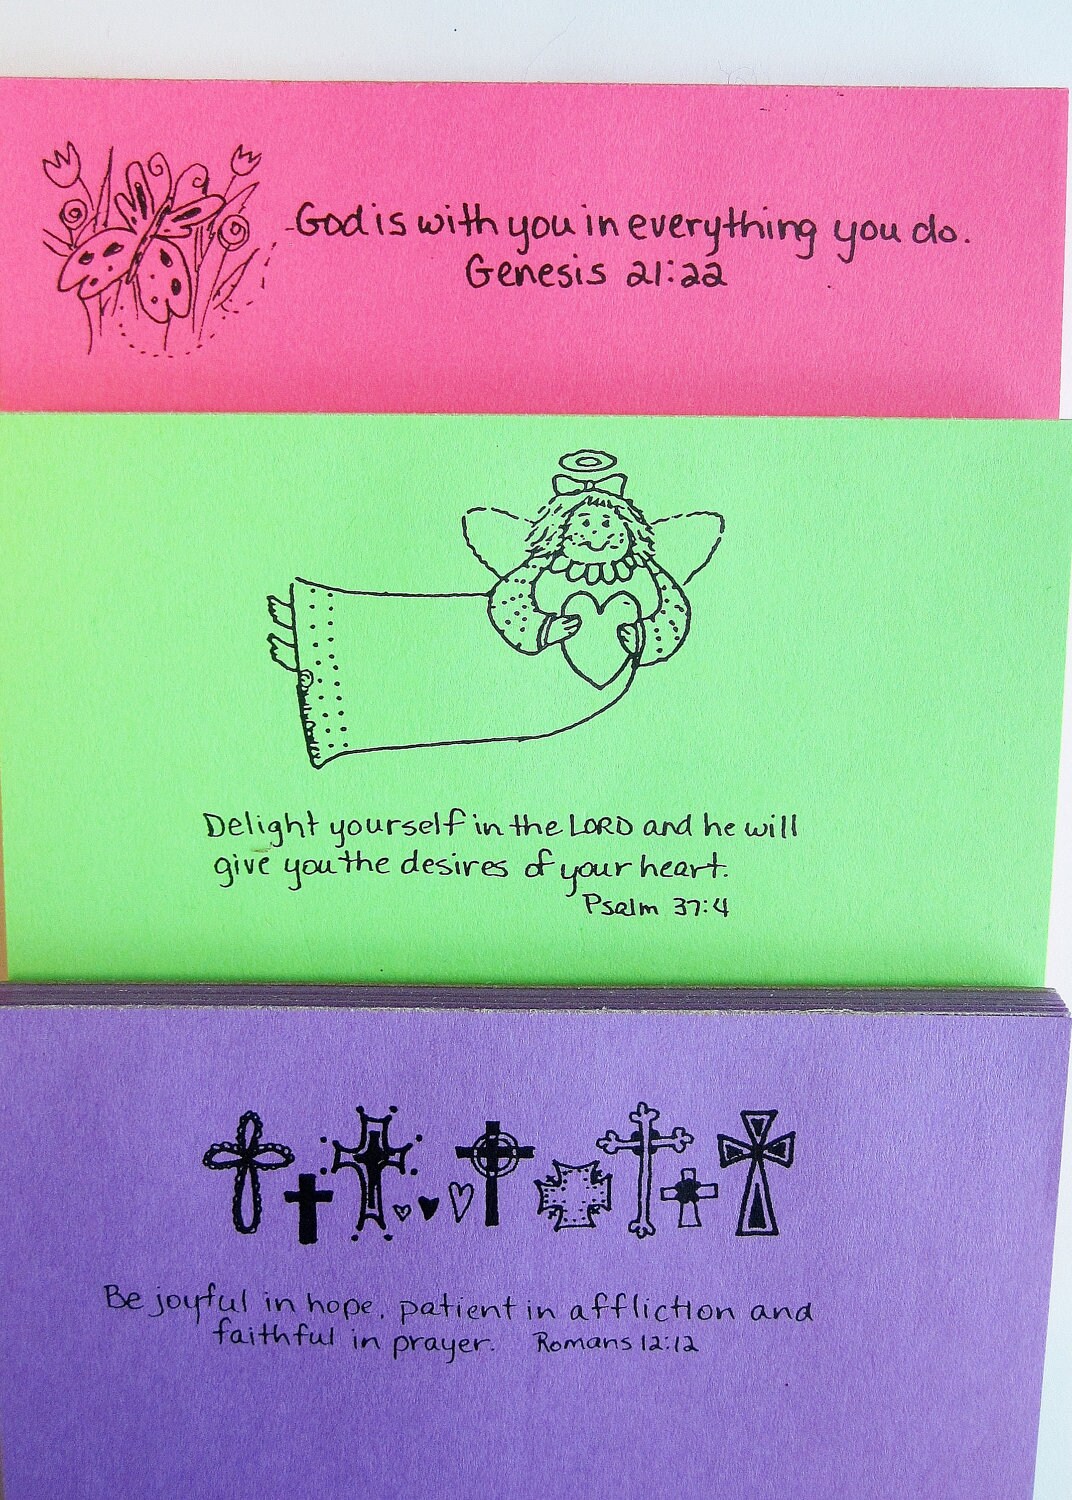 God is with you in everything you do.
Genesis 21:22
Delight yourself in the LORD and he will
give you the desires of your heart.
Psalm 37:4
Be joyful in hope, patient in affliction and
faithful in prayer. Romans 12:12